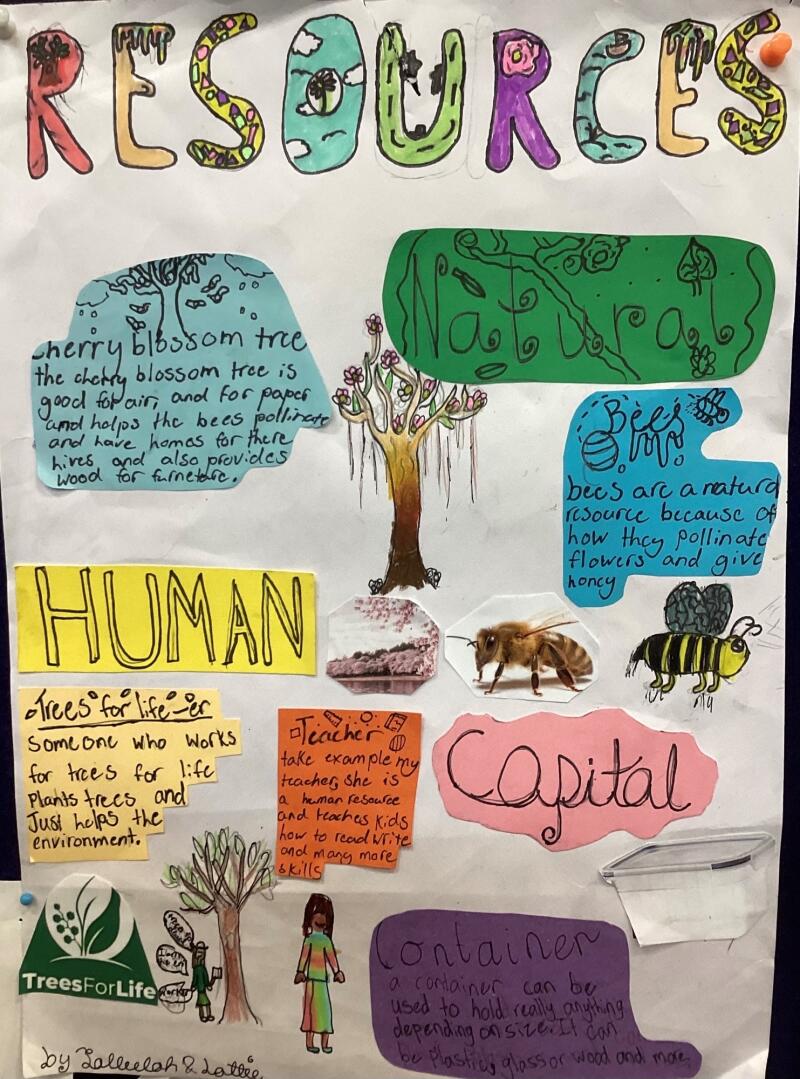 RESOURCES
Natural
cherry blossom tree
the cherry blossom tree is
good for air, and for paper
and helps the bees pollinate
and have homes for there
hives and also provides
wood for furnetare.
Bees
bees are a natural
resource because of
how they pollinate
flowers and give
honey
HUMAN
Trees for life-er
someone who works
for trees for life
plants trees and
Just helps the
environment.
Teacher
take example my
teacher, she is
a human resource
and teaches kids
how to read write
and many more
skills
Capital
TreesForLife
worker
Container
a container can be
used to hold really anything
depending on size. It can
be plastic, glass or wood and more
by Tallulah & Lottie